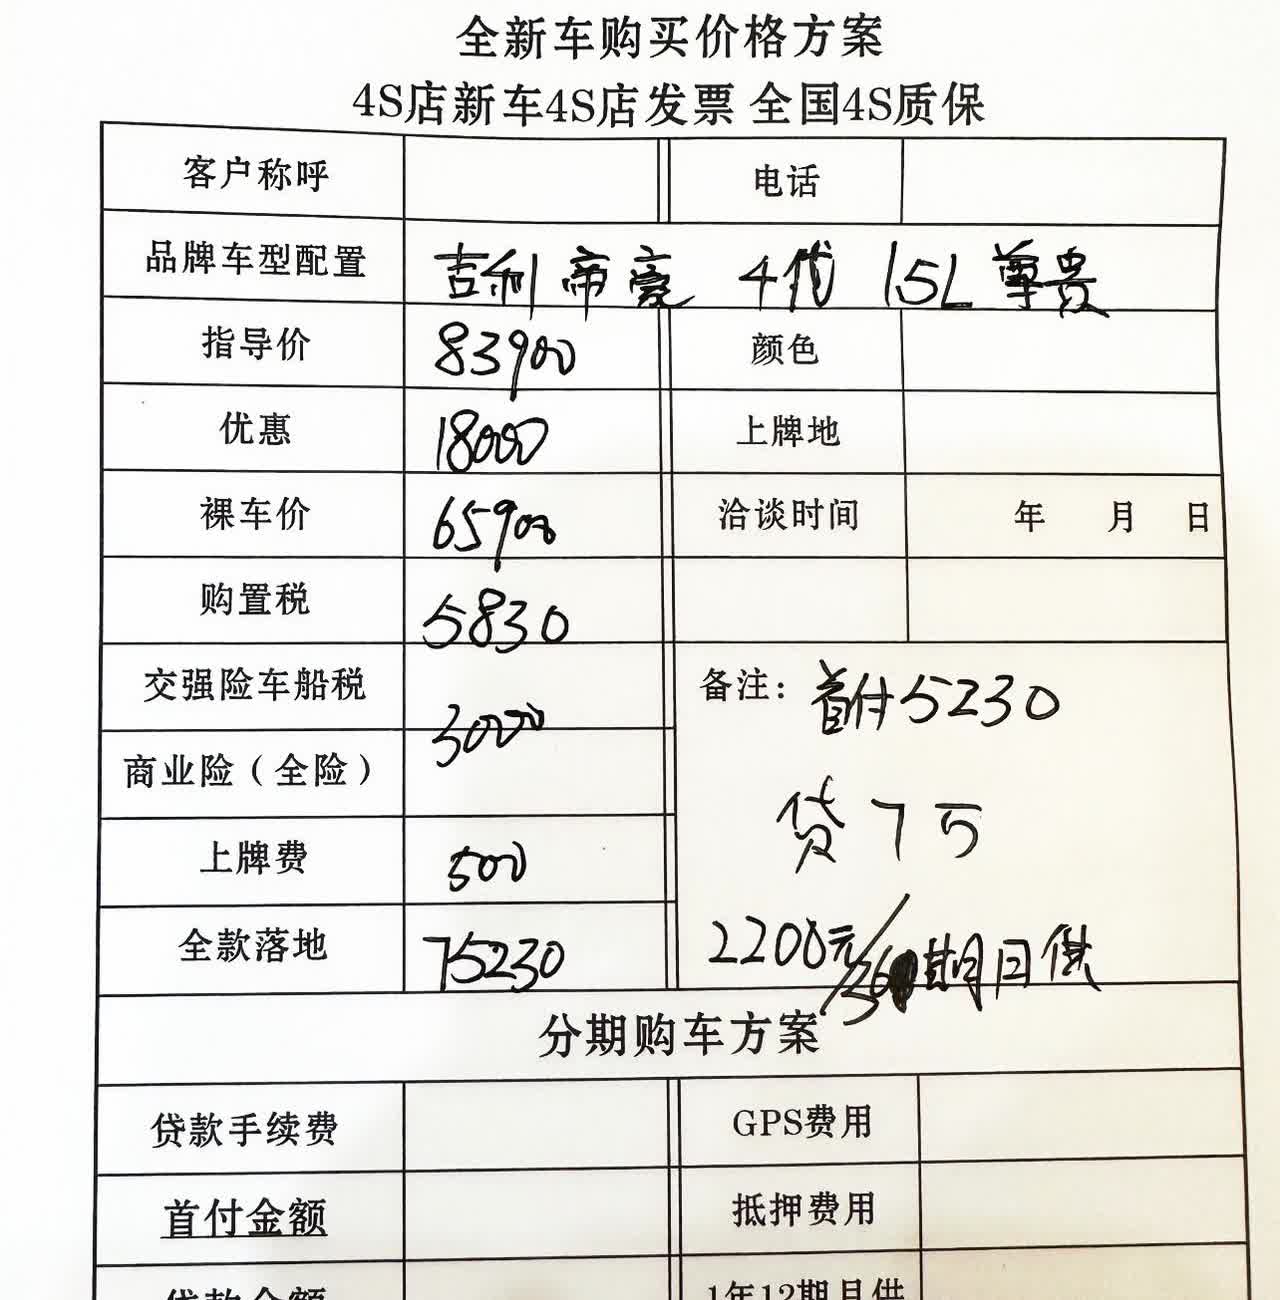 全新车购买价格方案
4S店新车4S店发票 全国4S质保
客户称呼 电话
品牌车型配置 吉利帝豪 4代 15L尊贵
指导价 83900 颜色
优惠 18000 上牌地
裸车价 65900 洽谈时间 年 月 日
购置税 5830
交强险车船税 3000 备注：首付5230
商业险（全险） 贷7万
上牌费 500
全款落地 75230 2200元/36期月供
分期购车方案
贷款手续费 GPS费用
首付金额 抵押费用
贷款金额 1年12期月供